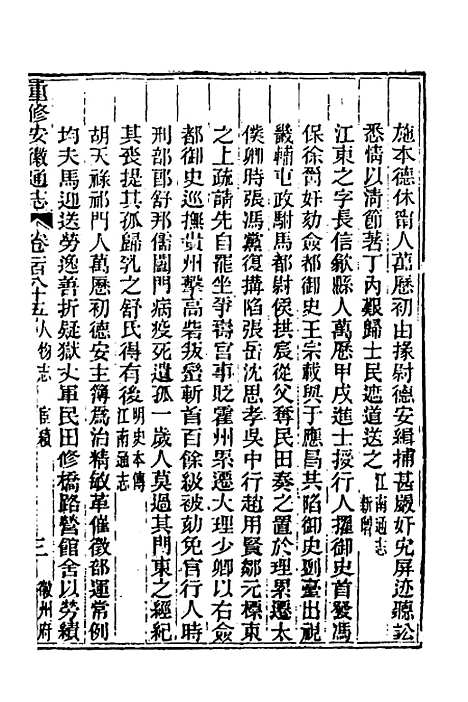 施本德休甯人萬歷初由掾尉德安緝捕甚嚴奸宄屏迹聽訟
悉情以清節著丁內艱歸士民遮道送之江南通志 新輯
江東之字長信歙縣人萬歷甲戌進士授行人擢御史首發馮
保徐爵奸劾僉都御史王宗載與于應昌共陷御史劉臺出視
畿輔屯政駙馬都尉侯拱宸從父奪民田奏之置於理累遷太
僕卿時張馮黨復搆陷張岳沈思孝吳中行趙用賢鄒元標東
之上疏請先自罷坐爭壽宮事貶霍州累遷大理少卿以右僉
都御史巡撫貴州擊高砦拔巒斬首百餘級被劾免官行人時
刑部郎舒邦儒闔門病疫死遺孤一歲人莫過其門東之經紀
其喪提其孤歸乳之舒氏得有後明史本傳 江南通志
胡天祿祁門人萬歷初德安主簿為治精敏革催徵部運常例
均夫馬迎送勞逸善折疑獄丈軍民田修橋路營館舍以勞績
重修安徽通志 卷一百八十五 人物志 宦績 三 徽州府